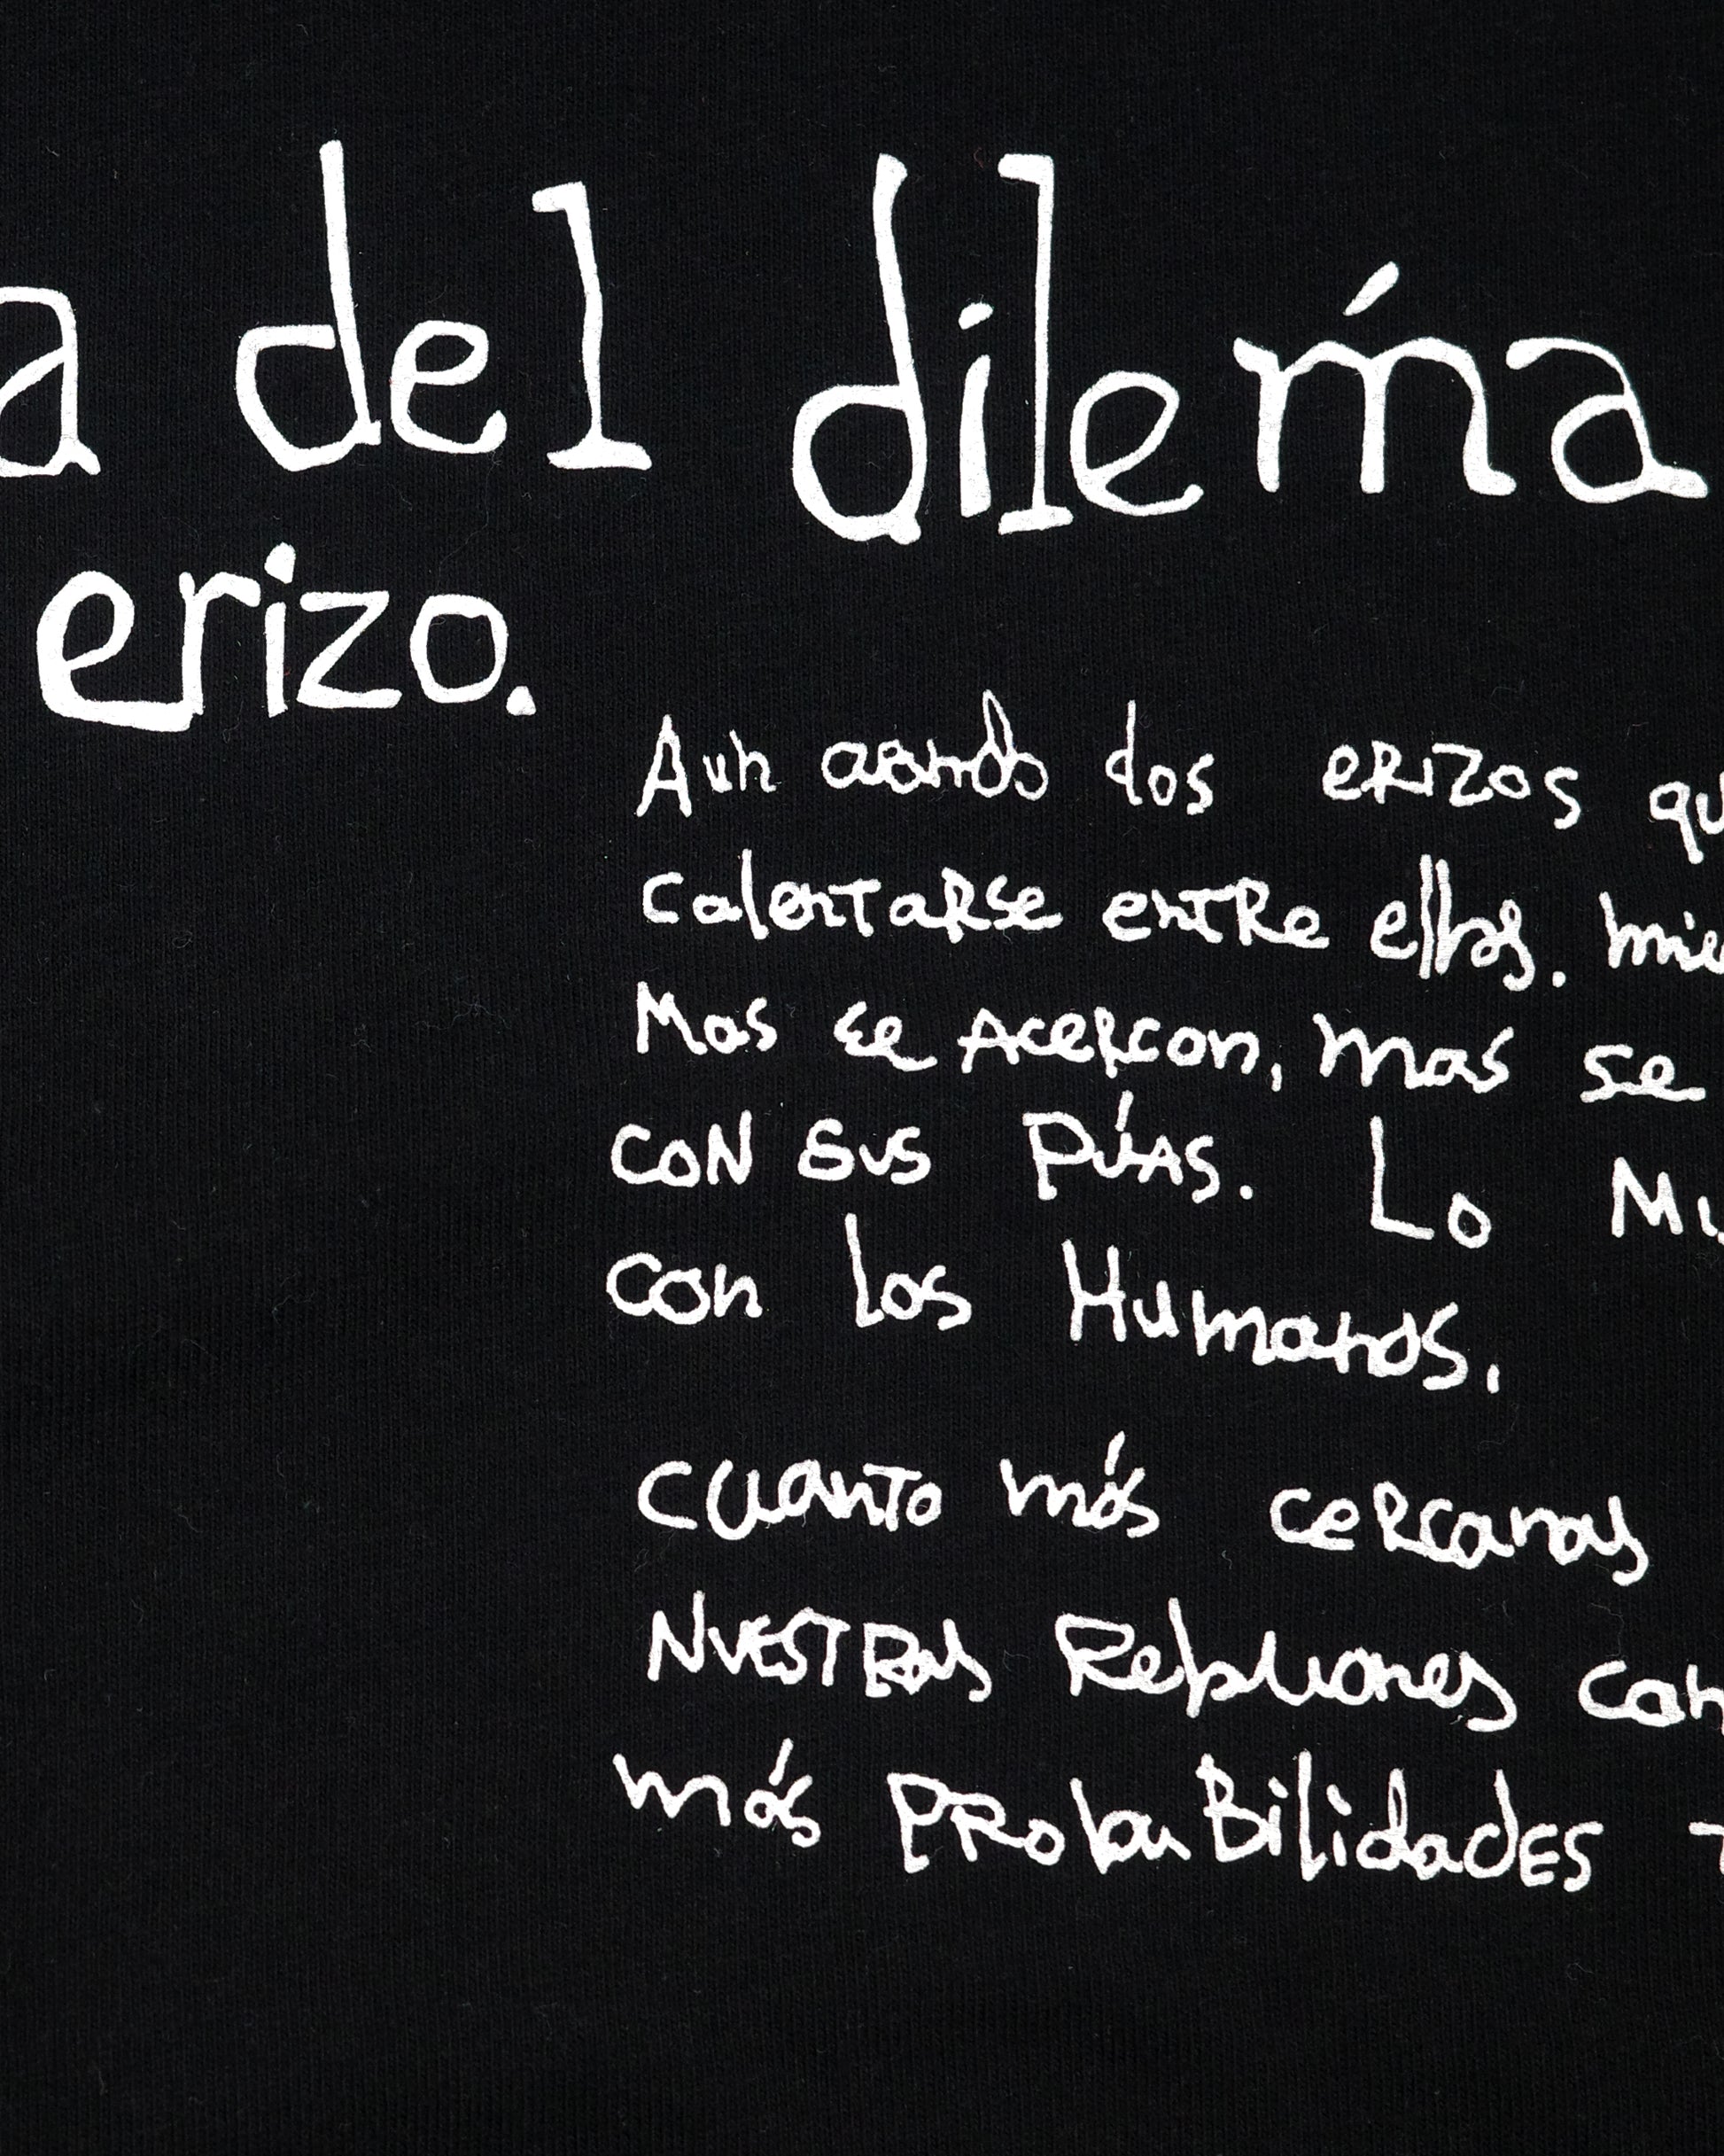 a del dilema
erizo.
Aun dos erizos qu
calentarse entre ellos. mie
Mas se Acercan, mas se
CON SUS PÚAS. Lo Mu
con los Humanos.
CUANTO más cercanas
NUESTRAS Relaciones con
más PRobaBilidadES T